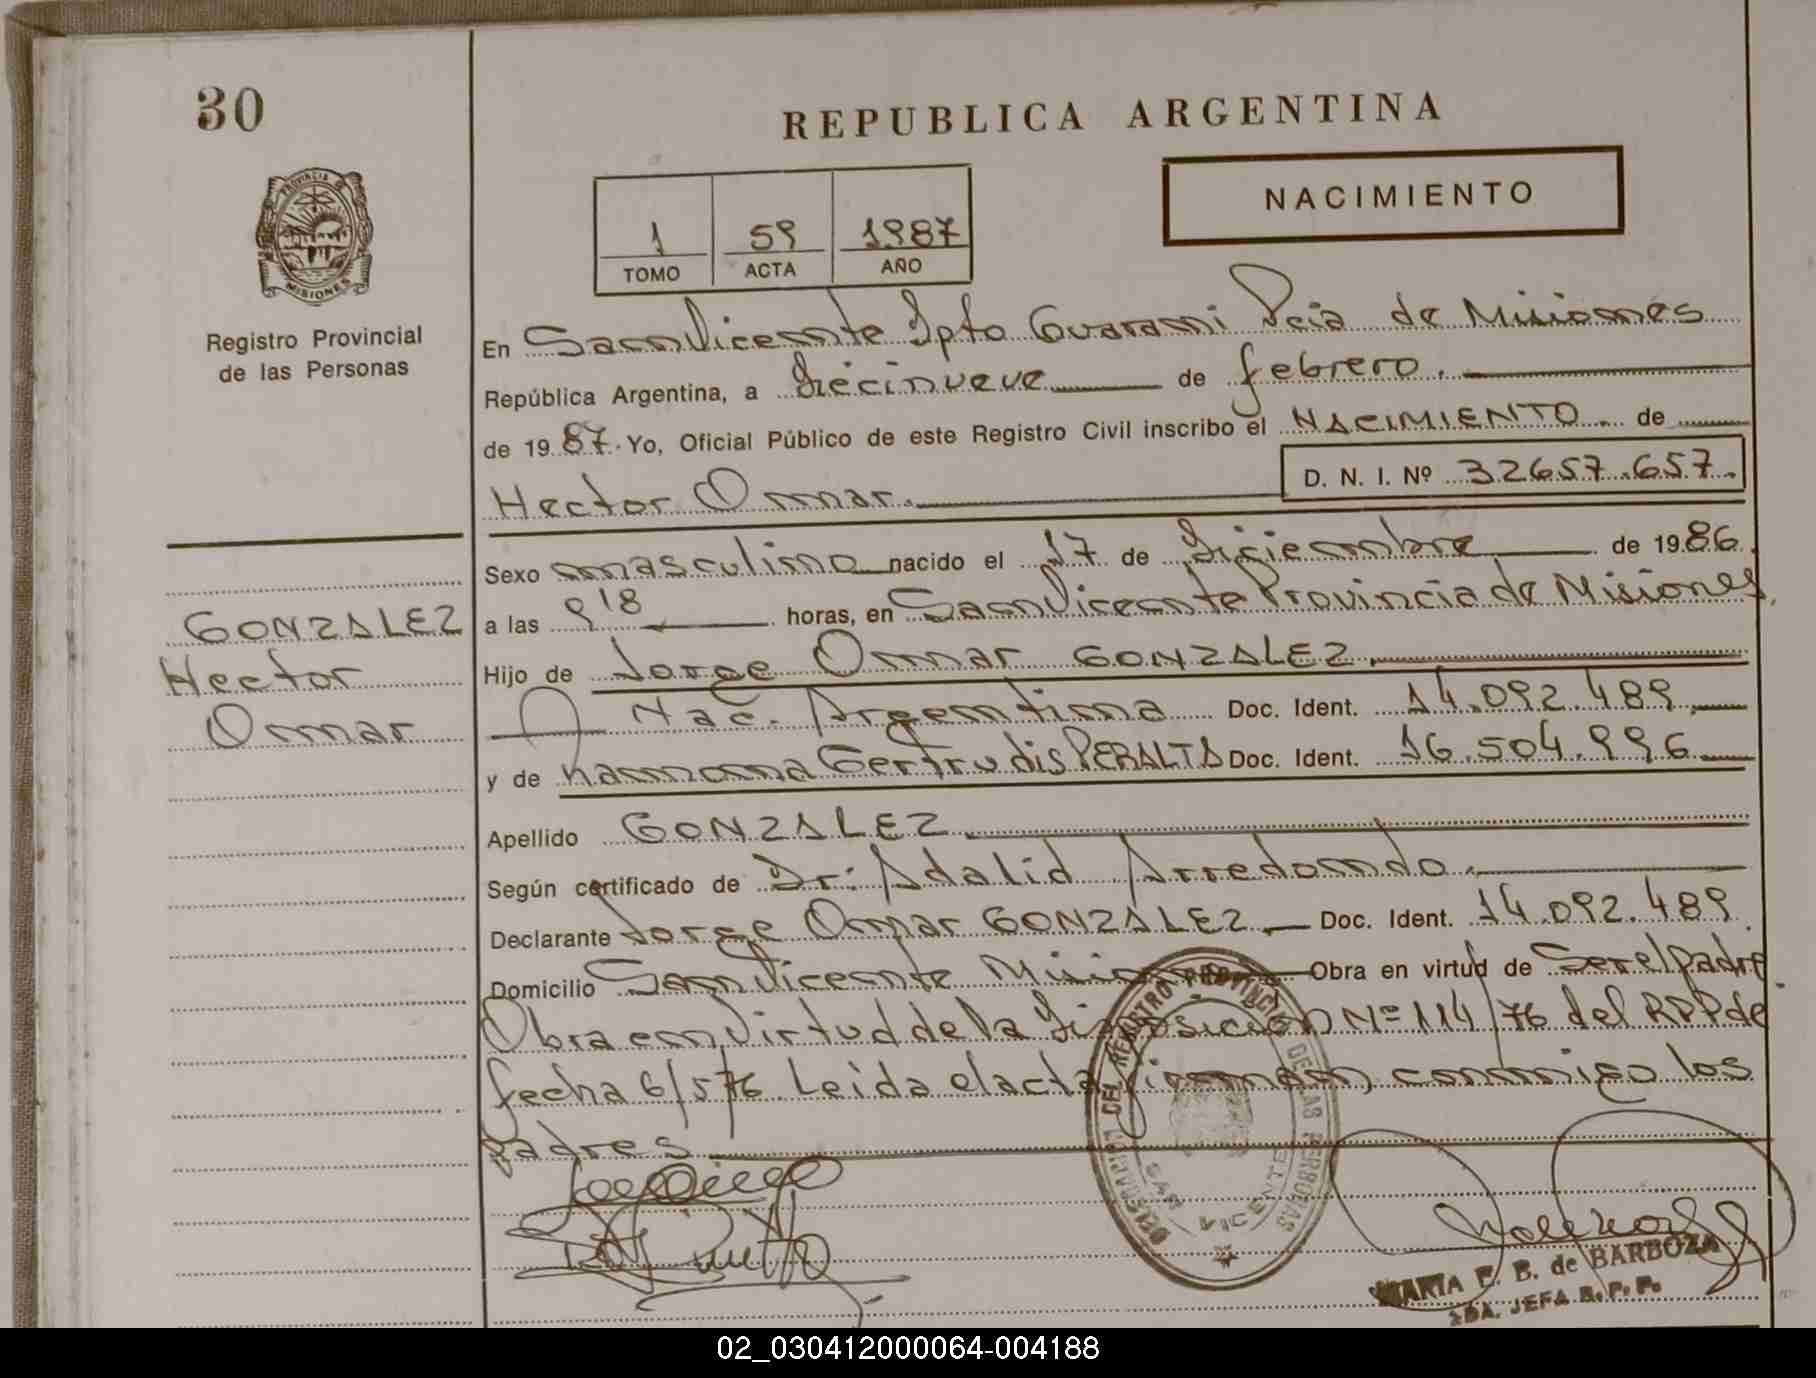 30
REPUBLICA ARGENTINA
PROVINCIA DE
MISIONES
Registro Provincial
de las Personas
NACIMIENTO
1 59 1987
TOMO ACTA AÑO
En San Vicente Dpto Guarani Pcia de Misiones
República Argentina, a diecinueve de febrero.
de 1987. Yo, Oficial Público de este Registro Civil inscribo el NACIMIENTO de
Hector Omar. D. N. I. Nº 32657.657.
Sexo masculino nacido el 17 de diciembre de 1986.
a las 9 18 horas, en San Vicente Provincia de Misiones.
Hijo de Jorge Omar GONZALEZ.
Nac. Argentina Doc. Ident. 14.092.489.
y de Ramona Gertrudis PERALTA Doc. Ident. 16.504.996
Apellido GONZALEZ.
Según certificado de Dr: Adalid Arredondo.
Declarante Jorge Omar GONZALEZ. Doc. Ident. 14.092.489
Domicilio San Vicente Misiones Obra en virtud de Ser el padre.
Obra en virtud de la Disposición Nº 114/76 del RPP de
fecha 6/5/76. Leida el acta firman conmigo los
padres
GONZALEZ
Hector
Omar
DEL REGISTRO PROVINCIAL DE LAS PERSONAS
SAN VICENTE
MARIA E. B. de BARBOZA
JEFA R. P. P.
02_030412000064-004188